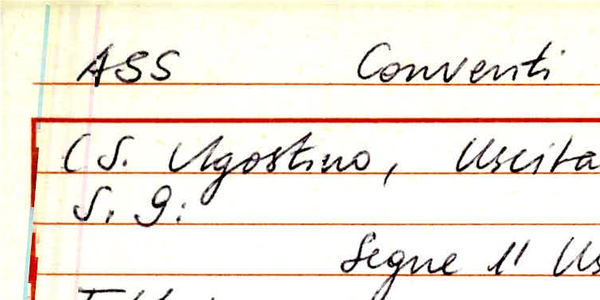 ASS Conventi
(S. Agostino, Uscita
S. g:
Segue 1' Us